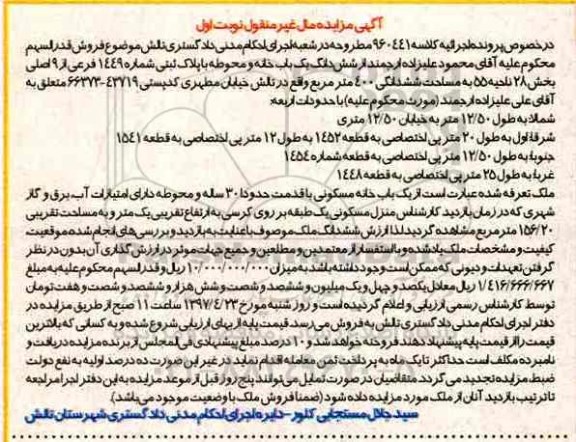 آگهی مزایده مال غیر منقول نوبت اول
درخصوص پرونده اجرائیه کلاسه ۹۶۰۴۴۱ مطروحه در شعبه اجرای احکام مدنی دادگستری تالش موضوع فروش قدرالسهم
محکوم علیه آقای محمود علیزاده ارجمند از شش دانگ یک باب خانه و محوطه با پلاک ثبتی شماره ۱۴۴۹ فرعی از ۹ اصلی
بخش ۲۸ ناحیه ۵۵ به مساحت ششدانگی ۴۰۰ متر مربع واقع در تالش خیابان مطهری کدپستی ۴۳۷۱۹-۶۶۳۷۳ متعلق به
آقای علی علیزاده ارجمند (مورث محکوم علیه) با حدودات اربعه:
شمالا به طول ۱۲/۵۰ متر به خیابان ۱۲/۵۰ متری
شرقا اول به طول ۲۰ متر پی اختصاصی به قطعه ۱۴۵۲ به طول ۱۲ متر پی اختصاصی به قطعه ۱۵۴۱
جنوبا به طول ۱۲/۵۰ متر پی اختصاصی به قطعه شماره ۱۴۵۴
غربا به طول ۲۵ متر پی اختصاصی به قطعه ۱۴۴۸
ملک تعرفه شده عبارت است از یک باب خانه مسکونی با قدمت حدودا ۳۰ ساله و محوطه دارای امتیازات آب، برق و گاز
شهری که در زمان بازدید کارشناس منزل مسکونی یک طبقه بر روی کرسی به ارتفاع تقریبی یک متر و به مساحت تقریبی
۱۵۶/۲۰ متر مربع مشاهده گردید لذا ارزش ششدانگ ملک موصوف با عنایت به بازدید و بررسی های انجام شده موقعیت
کیفیت و مشخصات ملک یاد شده و با استفسار از معتمدین و مطلعین و جمیع جهات موثر در ارزش گذاری آن بدون در نظر
گرفتن تعهدات و دیونی که ممکن است وجود داشته باشد به میزان ۱۰/۰۰۰/۰۰۰/۰۰۰ ریال و قدرالسهم محکوم علیه به مبلغ
۱/۴۱۶/۶۶۶/۶۶۷ ریال معادل یکصد و چهل و یک میلیون و ششصد و شصت و شش هزار و ششصد و شصت و هفت تومان
توسط کارشناس رسمی ارزیابی و اعلام گردیده است و روز شنبه مورخ ۱۳۹۷/۴/۲۳ ساعت ۱۱ صبح از طریق مزایده در
دفتر اجرای احکام مدنی دادگستری تالش به فروش می رسد قیمت پایه از بهای ارزیابی شروع شده و به کسانی که بالاترین
قیمت را از قیمت پایه پیشنهاد دهند فروخته خواهد شد و ۱۰ درصد مبلغ پیشنهادی فی المجلس از برنده مزایده دریافت و
نامبرده مکلف است حداکثر تا یک ماه به پرداخت ثمن معامله اقدام نماید در غیر این صورت ده درصد اولیه به نفع دولت
ضبط مزایده تجدید می گردد متقاضیان در صورت تمایل می توانند پنج روز قبل از موعد مزایده به این دفتر اجرا مراجعه
تا ترتیب بازدید آنان از ملک مورد مزایده داده شود (ضمنا فروش ملک با وضعیت موجود می باشد).
سید جلال مستجابی کلور - دایره اجرای احکام مدنی دادگستری شهرستان تالش